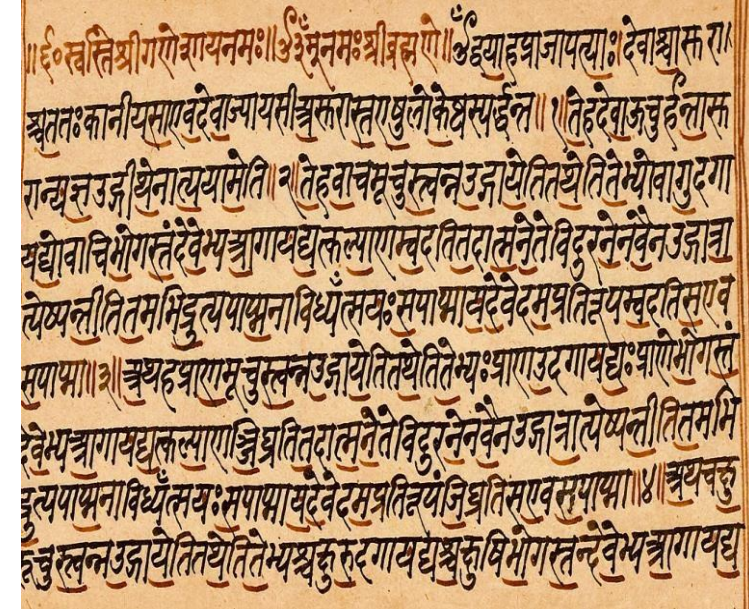 स्वस्तिश्रीगणेशायनमः॥ नमःश्रीब्रह्मणे॥ॐद्वयाहप्राजापत्याः।देवाश्चासुरा
श्चततःकानीयसाएवदेवाज्यायसाअसुरास्तएषुलोकेष्वस्पर्द्धन्त॥१॥तेहदेवाऊचुर्हन्तासु
रान्यज्ञउद्गीथेनात्ययामेति॥२॥तेहवाचमूचुस्त्वन्नउद्गायेतितथेतितेभ्योवागुदगा
यद्योवाचिभोगस्तंदेवेभ्यआगायद्यत्कल्याणम्वदतितदात्मनेतेविदुरनेनवैनउद्गात्रा
त्येष्यन्तीतितमभिद्रुत्यपाप्मनाविध्यँत्सयःसपाप्मायदेवेदमप्रतिरूपम्वदतिसएव
सपाप्मा॥३॥अथहप्राणमूचुस्त्वन्नउद्गायेतितथेतितेभ्यःप्राणउदगायद्यःप्राणेभोगस्तं
देवेभ्यआगायद्यत्कल्याणञ्जिघ्रतितदात्मनेतेविदुरनेनवैनउद्गात्रात्येष्यन्तीतितमभि
द्रुत्यपाप्मनाविध्यँत्सयःसपाप्मायदेवेदमप्रतिरूपंजिघ्रतिसएवसपाप्मा॥४॥अथचक्षु
रूचुस्त्वन्नउद्गायेतितथेतितेभ्यश्चक्षुरुदगायद्यश्चक्षुषिभोगस्तन्देवेभ्यआगायद्य